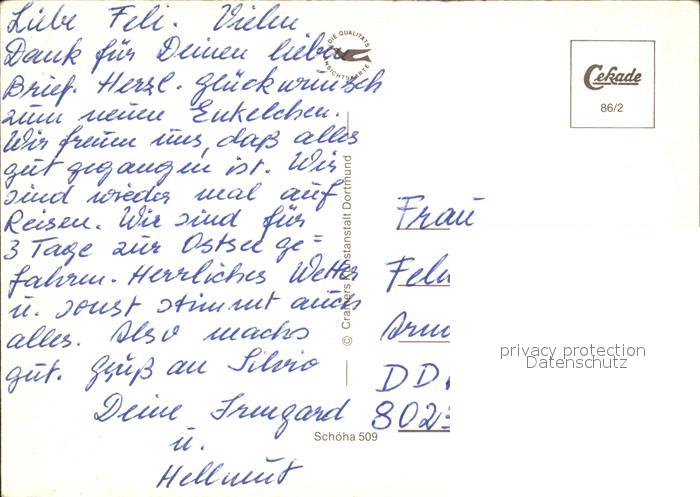 Liebe Feli. Vielen
Dank für Deinen lieben
Brief. Herzl. Glückwunsch
zum neuen Enkelchen.
Wir freuen uns, daß alles
gut gegangen ist. Wir
sind wieder mal auf
Reisen. Wir sind für
3 Tage zur Ostsee ge=
fahren. Herrliches Wetter
u. sonst stimmt auch
alles. Also machs
gut. Gruß an Silvio
Deine Irmgard
u.
Hellmut
DIE QUALITÄTS
ANSICHTSKARTE
© Cramers Kunstanstalt Dortmund
Schöha 509
Cekade
86/2
Frau
DD
802
privacy protection
Datenschutz